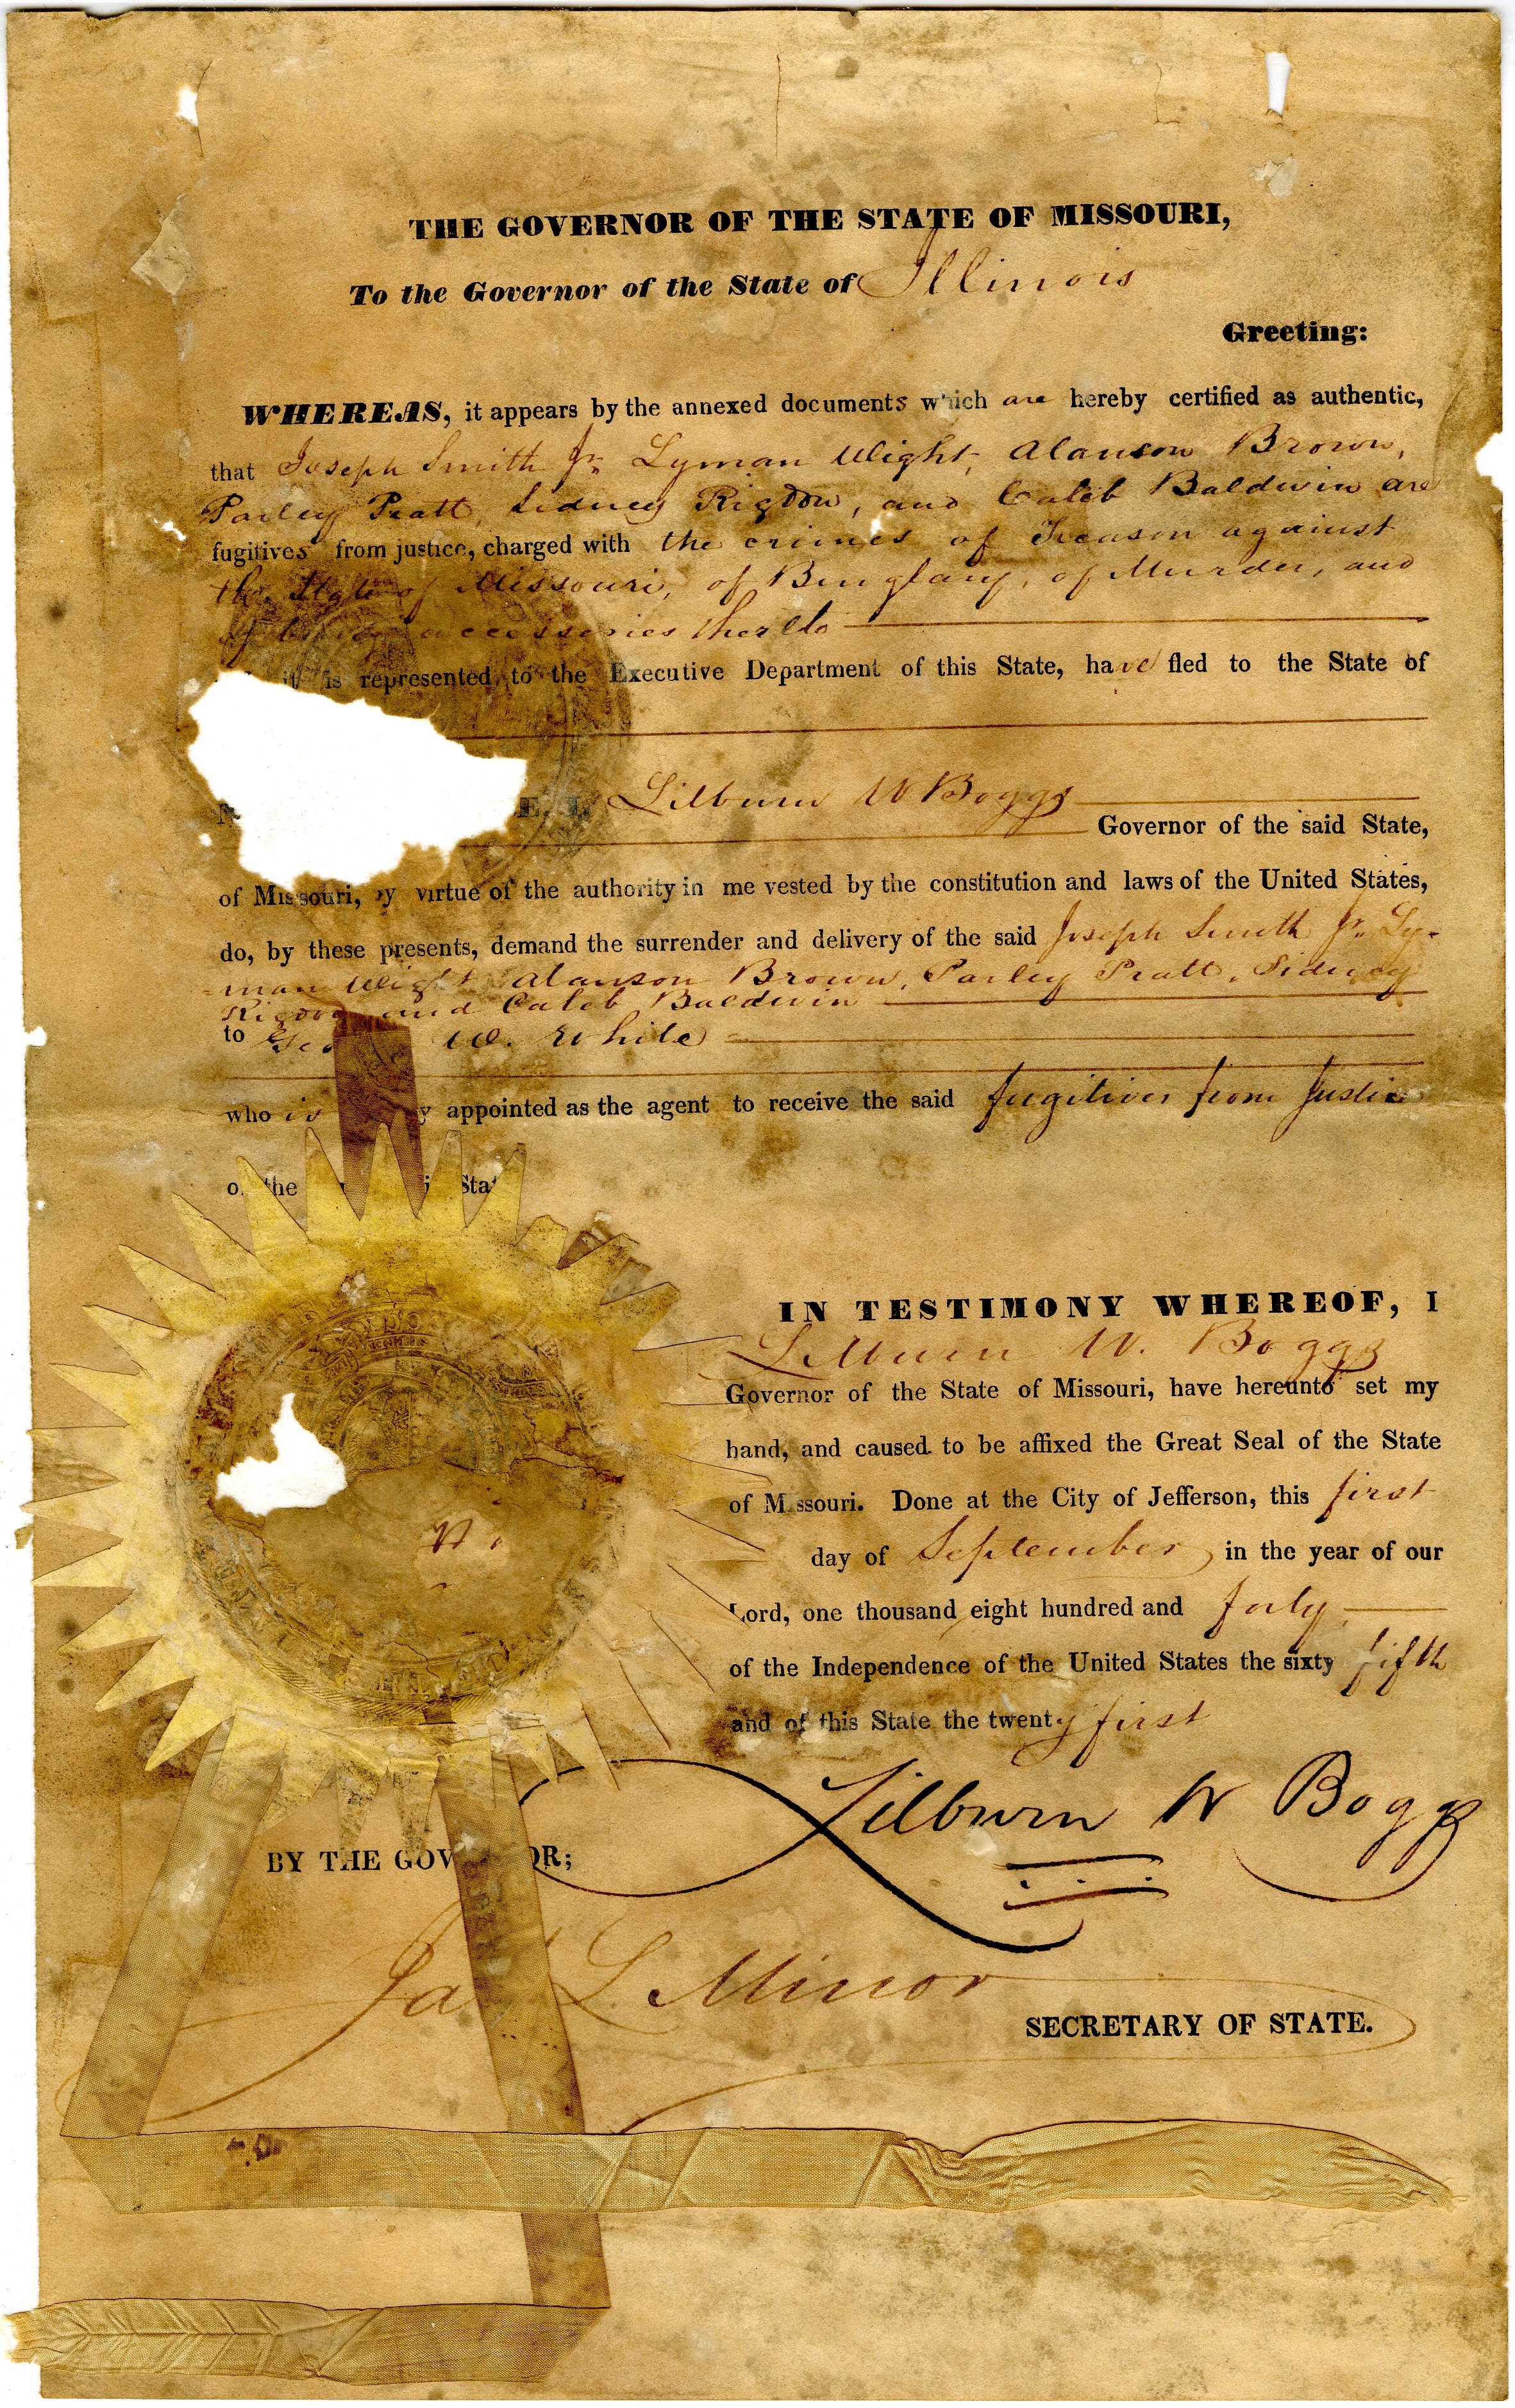 THE GOVERNOR OF THE STATE OF MISSOURI,
To the Governor of the State of Illinois
Greeting:
WHEREAS, it appears by the annexed documents which are hereby certified as authentic,
that Joseph Smith Jr. Lyman Wight, Alanson Brown,
Parley Pratt, Sidney Rigdon, and Caleb Baldwin are
fugitives from justice, charged with the crimes of Treason against
the State of Missouri, of Burglary, of Murder, and
of being accessories thereto
it is represented to the Executive Department of this State, have fled to the State of
E, I, Lilburn W Boggs
Governor of the said State,
of Missouri, by virtue of the authority in me vested by the constitution and laws of the United States,
do, by these presents, demand the surrender and delivery of the said Joseph Smith Jr. Ly-
-man Wight Alanson Brown, Parley Pratt, Sidney
Rigdon and Caleb Baldwin
to W. White
who is y appointed as the agent to receive the said fugitives from Justice
the Stat
IN TESTIMONY WHEREOF, I
Lilburn W. Boggs
Governor of the State of Missouri, have hereunto set my
hand, and caused to be affixed the Great Seal of the State
of Missouri. Done at the City of Jefferson, this first
day of September, in the year of our
Lord, one thousand eight hundred and forty
of the Independence of the United States the sixty fifth
and of this State the twenty first
Lilburn W Boggs
BY THE GOV OR;
Ja L Minor
SECRETARY OF STATE.